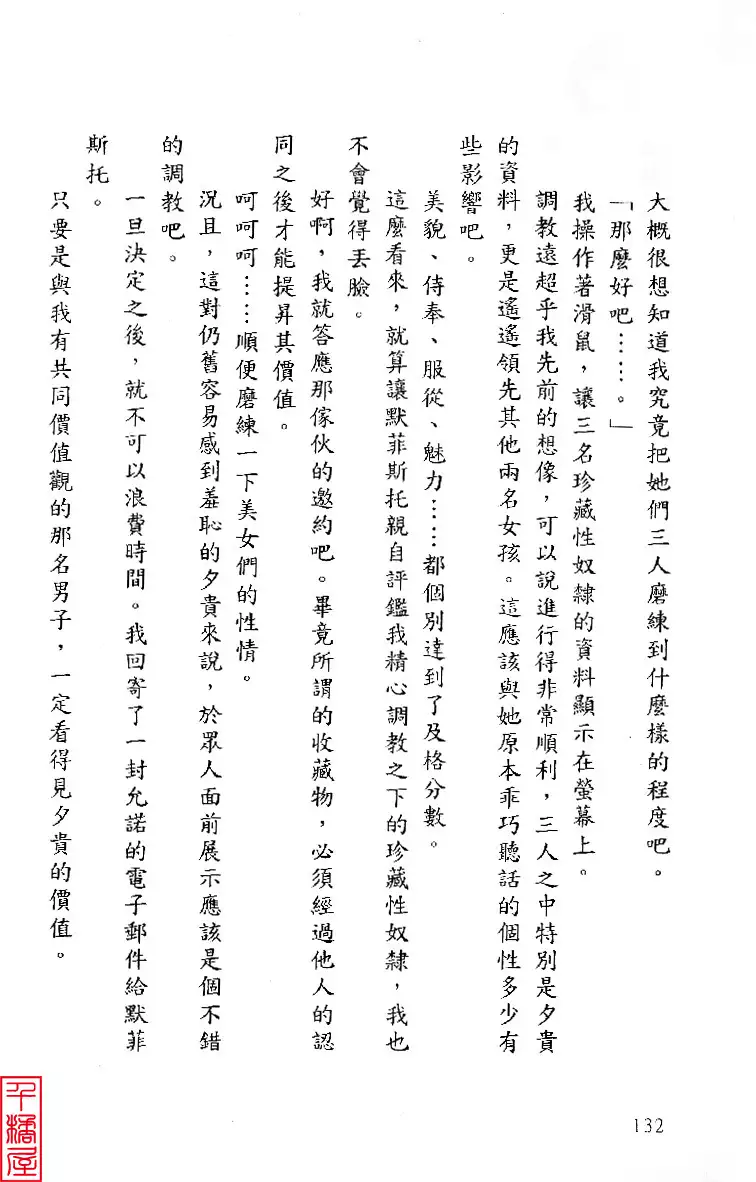 大概很想知道我究竟把她們三人磨練到什麼樣的程度吧。
「那麼好吧……。」
我操作著滑鼠，讓三名珍藏性奴隸的資料顯示在螢幕上。
調教遠超乎我先前的想像，可以說進行得非常順利，三人之中特別是夕貴
的資料，更是遙遙領先其他兩名女孩。這應該與她原本乖巧聽話的個性多少有
些影響吧。
美貌、侍奉、服從、魅力……都個別達到了及格分數。
這麼看來，就算讓默菲斯托親自評鑑我精心調教之下的珍藏性奴隸，我也
不會覺得丟臉。
好啊，我就答應那傢伙的邀約吧。畢竟所謂的收藏物，必須經過他人的認
同之後才能提昇其價值。
呵呵呵……順便磨練一下美女們的性情。
況且，這對仍舊容易感到羞恥的夕貴來說，於眾人面前展示應該是個不錯
的調教吧。
一旦決定之後，就不可以浪費時間。我回寄了一封允諾的電子郵件給默菲
斯托。
只要是與我有共同價值觀的那名男子，一定看得見夕貴的價值。
132
橘屋